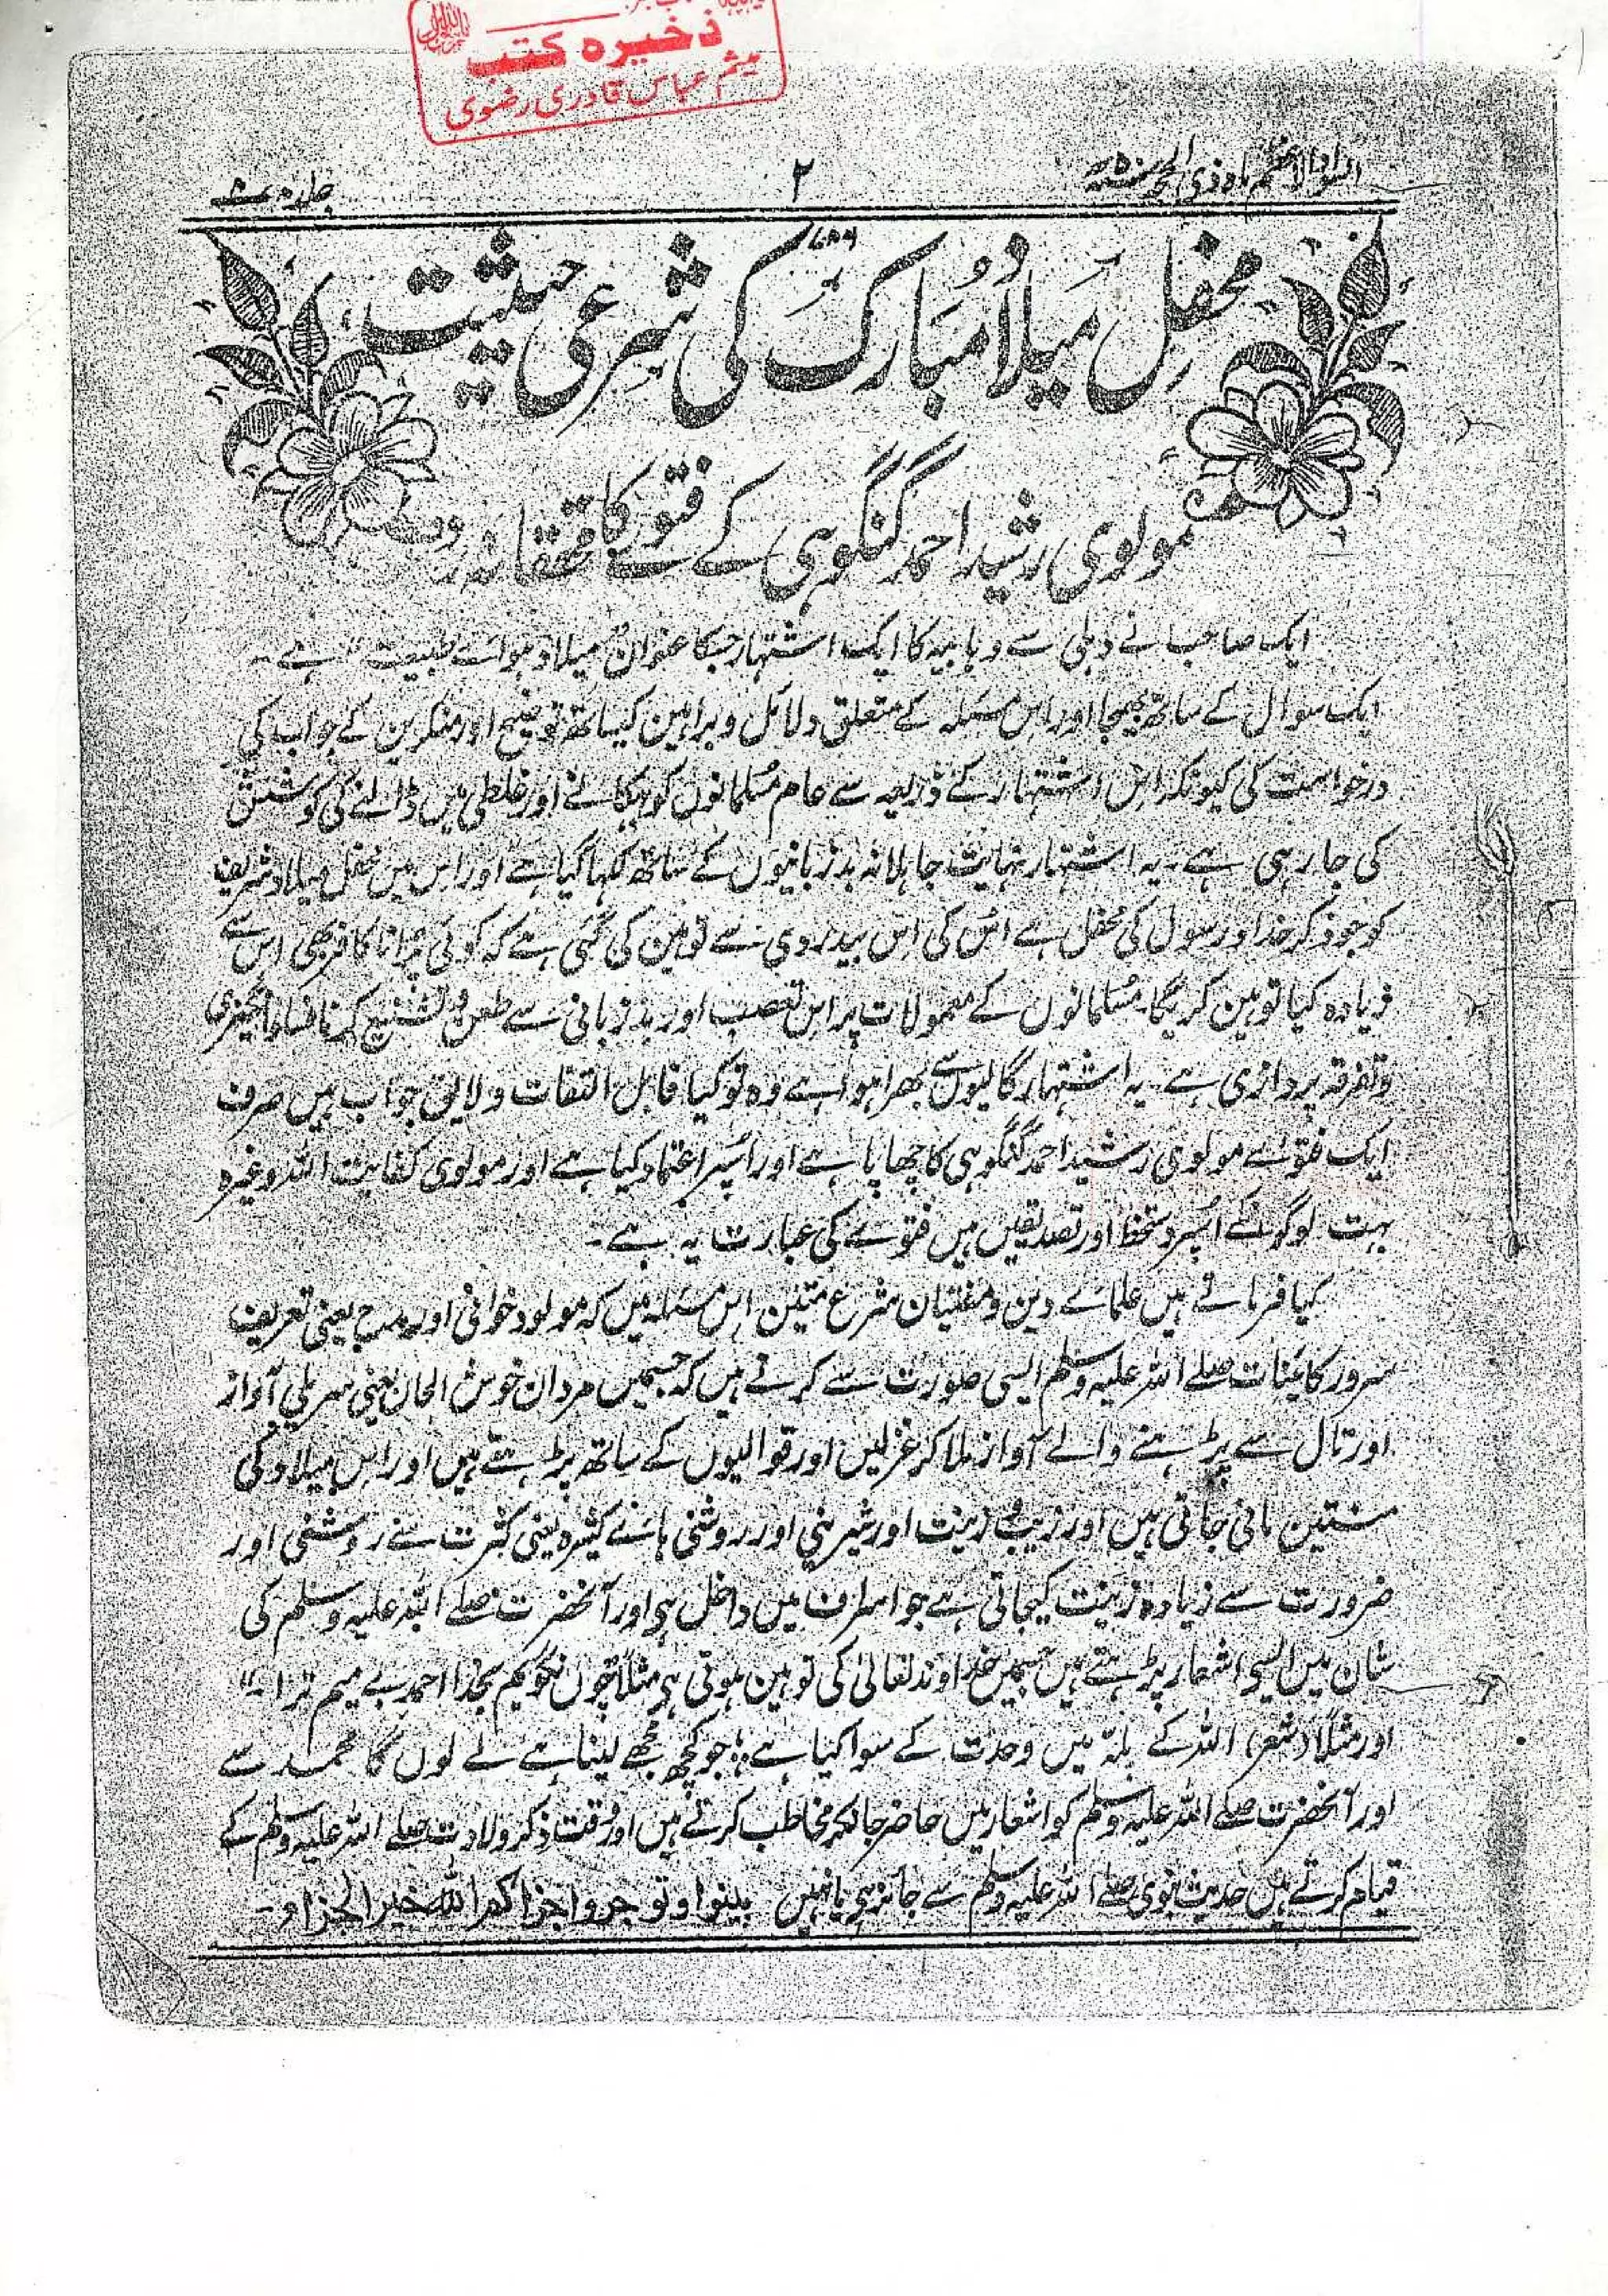 ذخیرہ کتب
میثم عباس قادری رضوی
السواد الاعظم ماہ ذی الحجہ
۲
جلد
۷۸۶
محفلِ میلاد مُبارک کی شرعی حیثیت
مولوی رشید احمد گنگوہی کے فتوے کا محققانہ رد
ایک صاحب نے دہلی سے وہابیہ کا ایک اشتہار جسکا عنوان میلاد و ہوائے طبیعت ہے۔
ایک سوال کے ساتھ بھیجا اور اس مسئلہ کے متعلق دلائل و براہین کیساتھ توضیح اور منکرین کے جواب کی
درخواست کی کیونکہ اس اشتہار کے ذریعہ سے عام مسلمانوں کو بہکانے اور غلطی میں ڈالنے کی کوشش
کی جا رہی ہے۔ یہ اشتہار نہایت جاہلانہ بدزبانیوں کے ساتھ لکھا گیا ہے اور اس میں محفل میلاد شریف
کو جو ذکر خدا و رسول کی محفل ہے اُس کی اس بیدردی سے توہین کی گئی ہے کہ کوئی پرانا کافر بھی اس سے
زیادہ کیا توہین کریگا۔ مسلمانوں کے معمولات پر اس تعصب اور بدزبانی سے طعن و تشنیع کرنا فساد انگیزی
و تفرقہ پردازی ہے۔ یہ اشتہار گالیوں سے بھرا ہوا ہے وہ تو کیا قابل التفات و لایق جواب ہیں صرف
ایک فتوے مولوی رشید احمد گنگوہی کا چھاپا ہے اور اُسپر اعتماد کیا ہے اور مولوی کفایت اللہ وغیرہ
بہت لوگوں کے اُسپر دستخط اور تصدیقیں ہیں فتوے کی عبارت یہ ہے۔
کیا فرماتے ہیں علمائے دین و مفتیان شرع متین اس مسئلہ میں کہ مولود خوانی اور مدح یعنی تعریف
سرور کائنات صلے اللہ علیہ وسلم ایسی صورت سے کرتے ہیں کہ جسمیں مردان خوش الحان یعنی سریلی آواز
اور تال سے پڑہنے والے آواز ملا کر غزلیں اور قوالیوں کے ساتھ پڑہتے ہیں اور اس میلاد کی
منتیں مانی جاتی ہیں اور زیب و زینت اور شیرینی اور روشنی ہائے کثیرہ یعنی کثرت سے روشنی اور
ضرورت سے زیادہ زینت کیجاتی ہے جو اسراف میں داخل ہی اور آنحضرت صلے اللہ علیہ وسلم کی
شان میں ایسی اشعار پڑہتے ہیں جسمیں خداوند تعالیٰ کی توہین ہوتی ہی مثلاً چوں نگویم بخدا احمد بے میم ترا۔"
اور مثلاً (شعر) اللہ کے پلہ میں وحدت کے سوا کیا ہے؛ جو کچھ مجھے لینا ہے لے لوں گا محمد سے
اور آنحضرت صلے اللہ علیہ وسلم کو اشعار میں حاضر جانکر مخاطب کرتے ہیں اور وقت ذکر ولادت صلے اللہ علیہ وسلم کے
قیام کرتے ہیں حدیث نبوی صلے اللہ علیہ وسلم سے جائز ہی یا نہیں بینوا و توجروا جزاکم اللہ خیر الجزاء۔